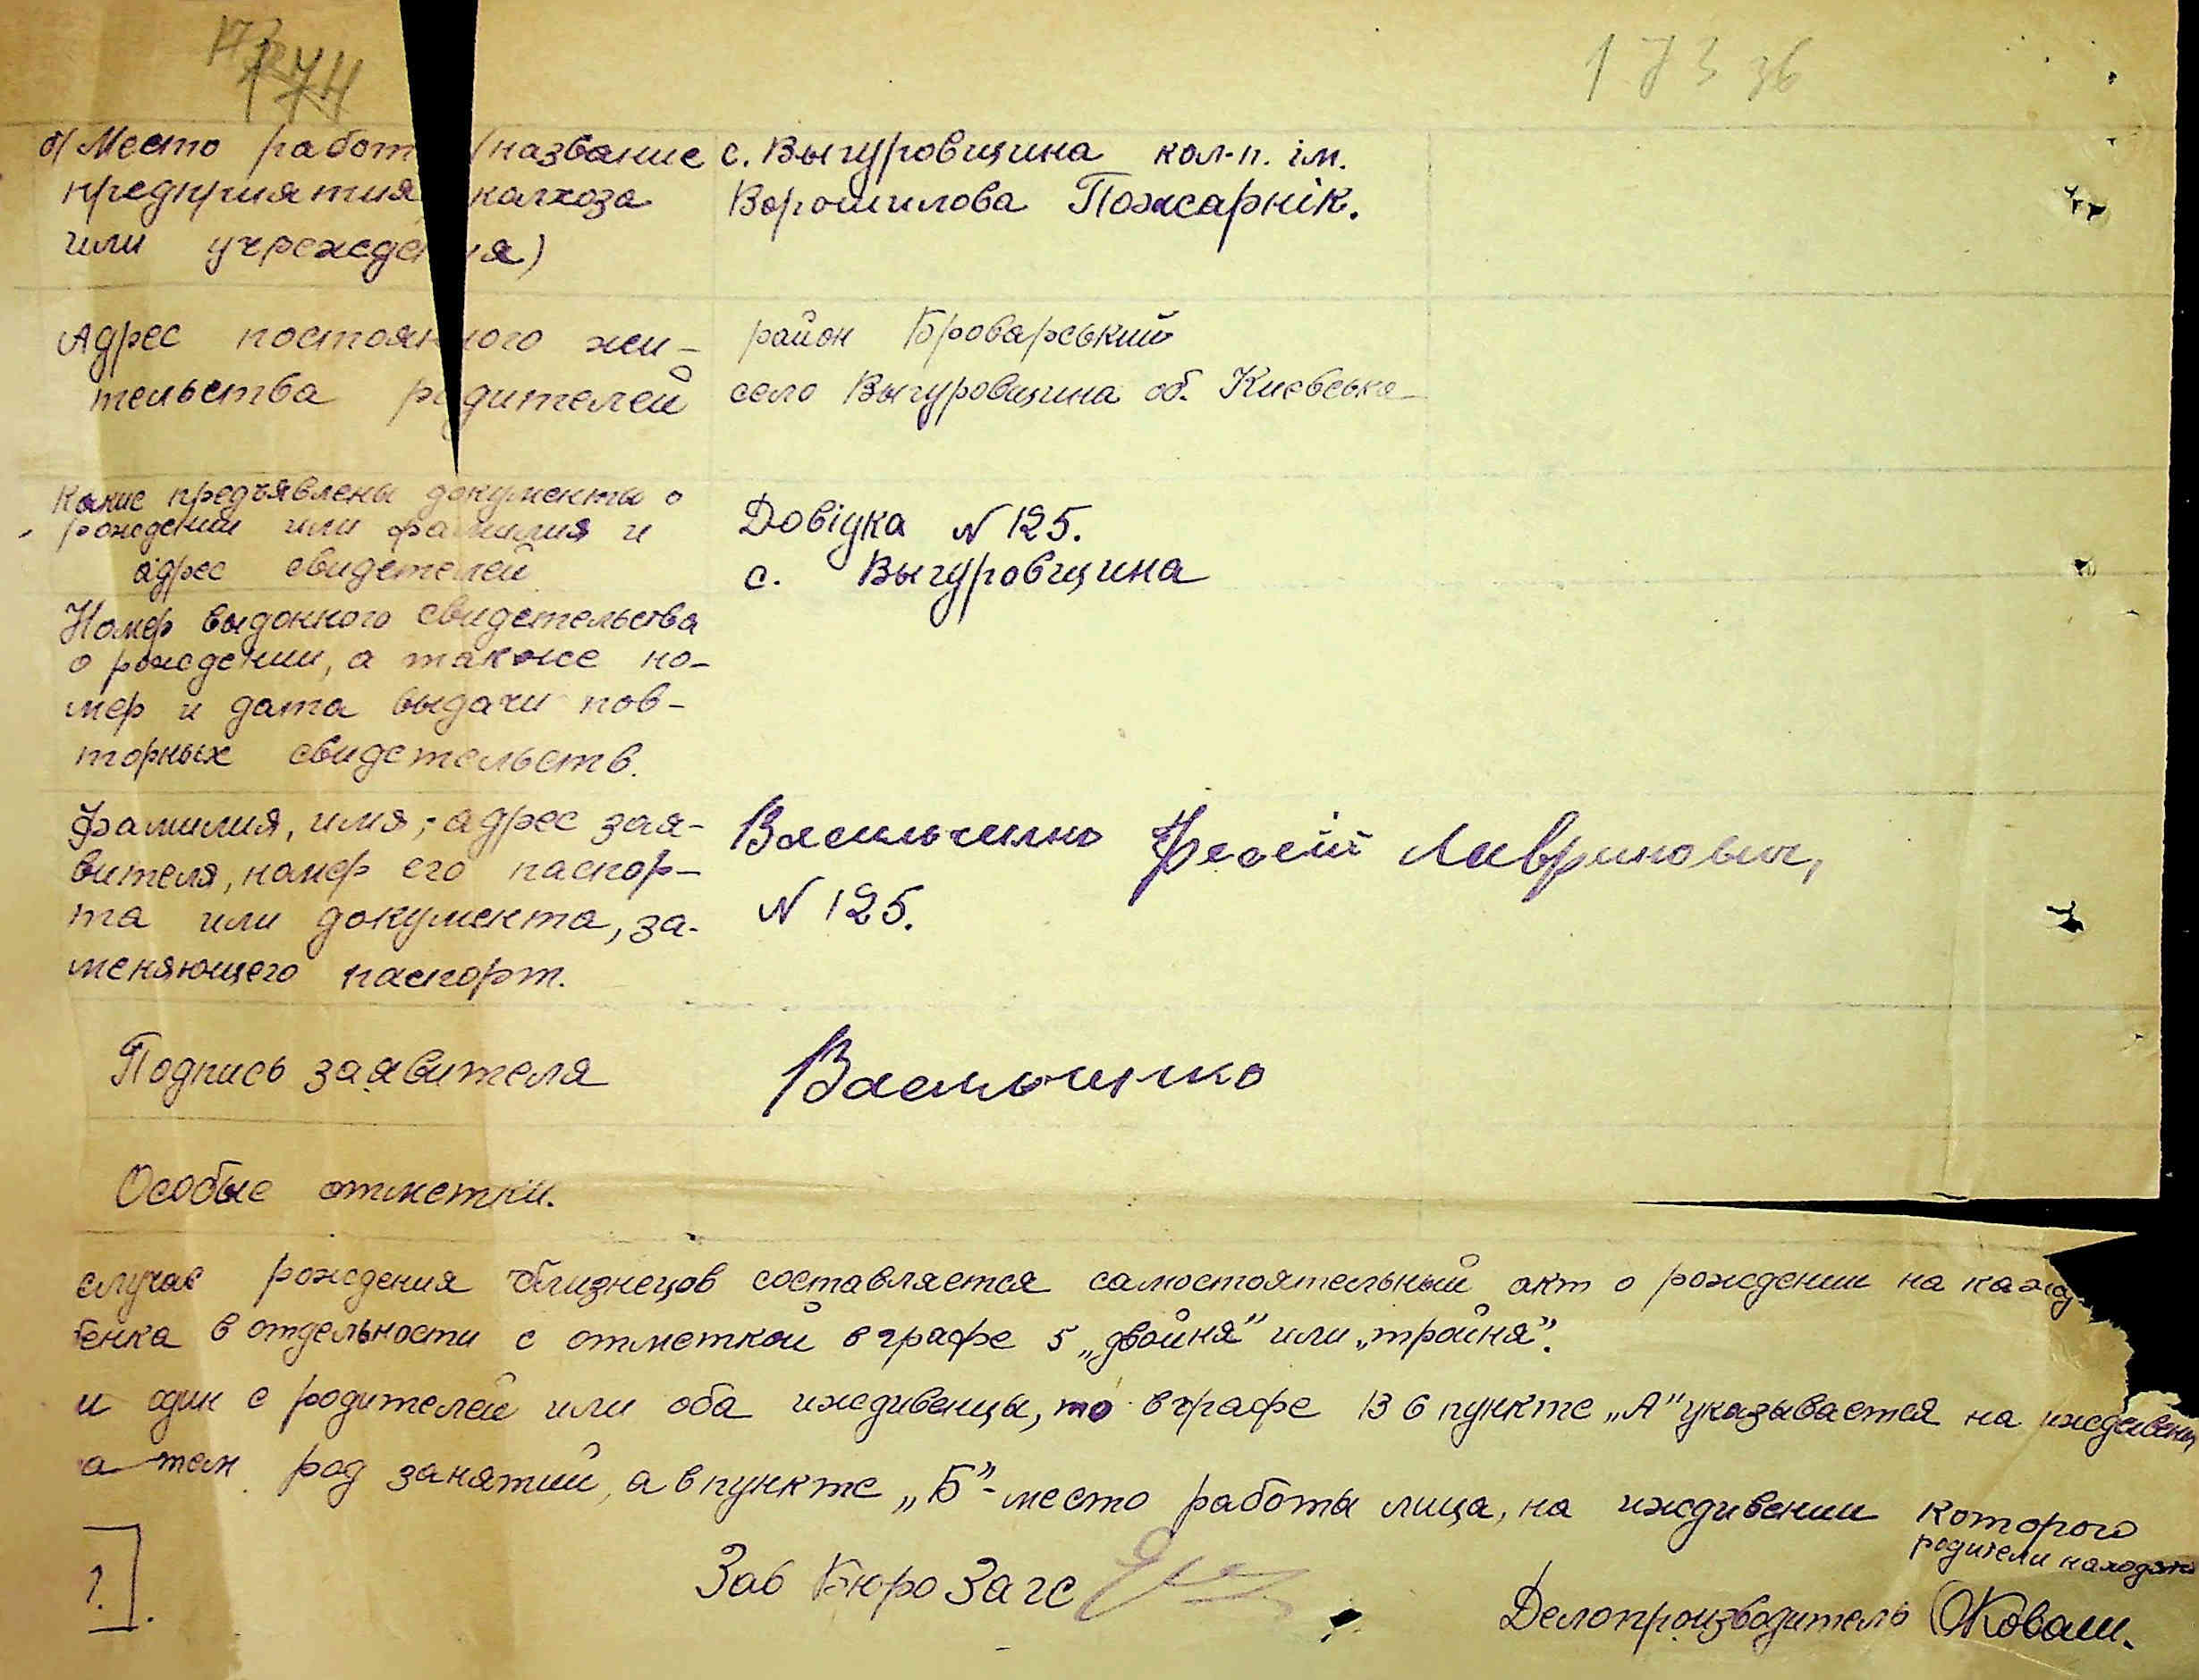 174
173 зв
б) Место работ (название с. Выгуровщина кол-п. ім.
предприятия колхоза Ворошилова Пожарнік.
или учрежде ия)
Адрес постоянного жи- район Броварський
тельства родителей село Выгуровщина об. Киевська
Какие предъявлены документы о
рождении или фамилия и Довідка N 125.
адрес свидетелей с. Выгуровщина
Номер выданного свидетельства
о рождении, а также но-
мер и дата выдачи пов-
торных свидетельств.
Фамилия, имя, адрес зая- Васильченко Лавринович,
вителя, номер его паспор- N 125.
та или документа, за-
меняющего паспорт.
Подпись заявителя
Особые отметки.
случае рождения близнецов составляется самостоятельный акт о рождении на кажд
бенка в отдельности с отметкой в графе 5 „двойня" или „тройня".
и один с родителей или оба иждивенцы, то в графе 13 в пункте „А" указывается на иждивен
а там род занятий, а в пункте „Б"- место работы лица, на иждивении которого
родители находят
1.
Зав Бюро Загс
Делопроизводитель